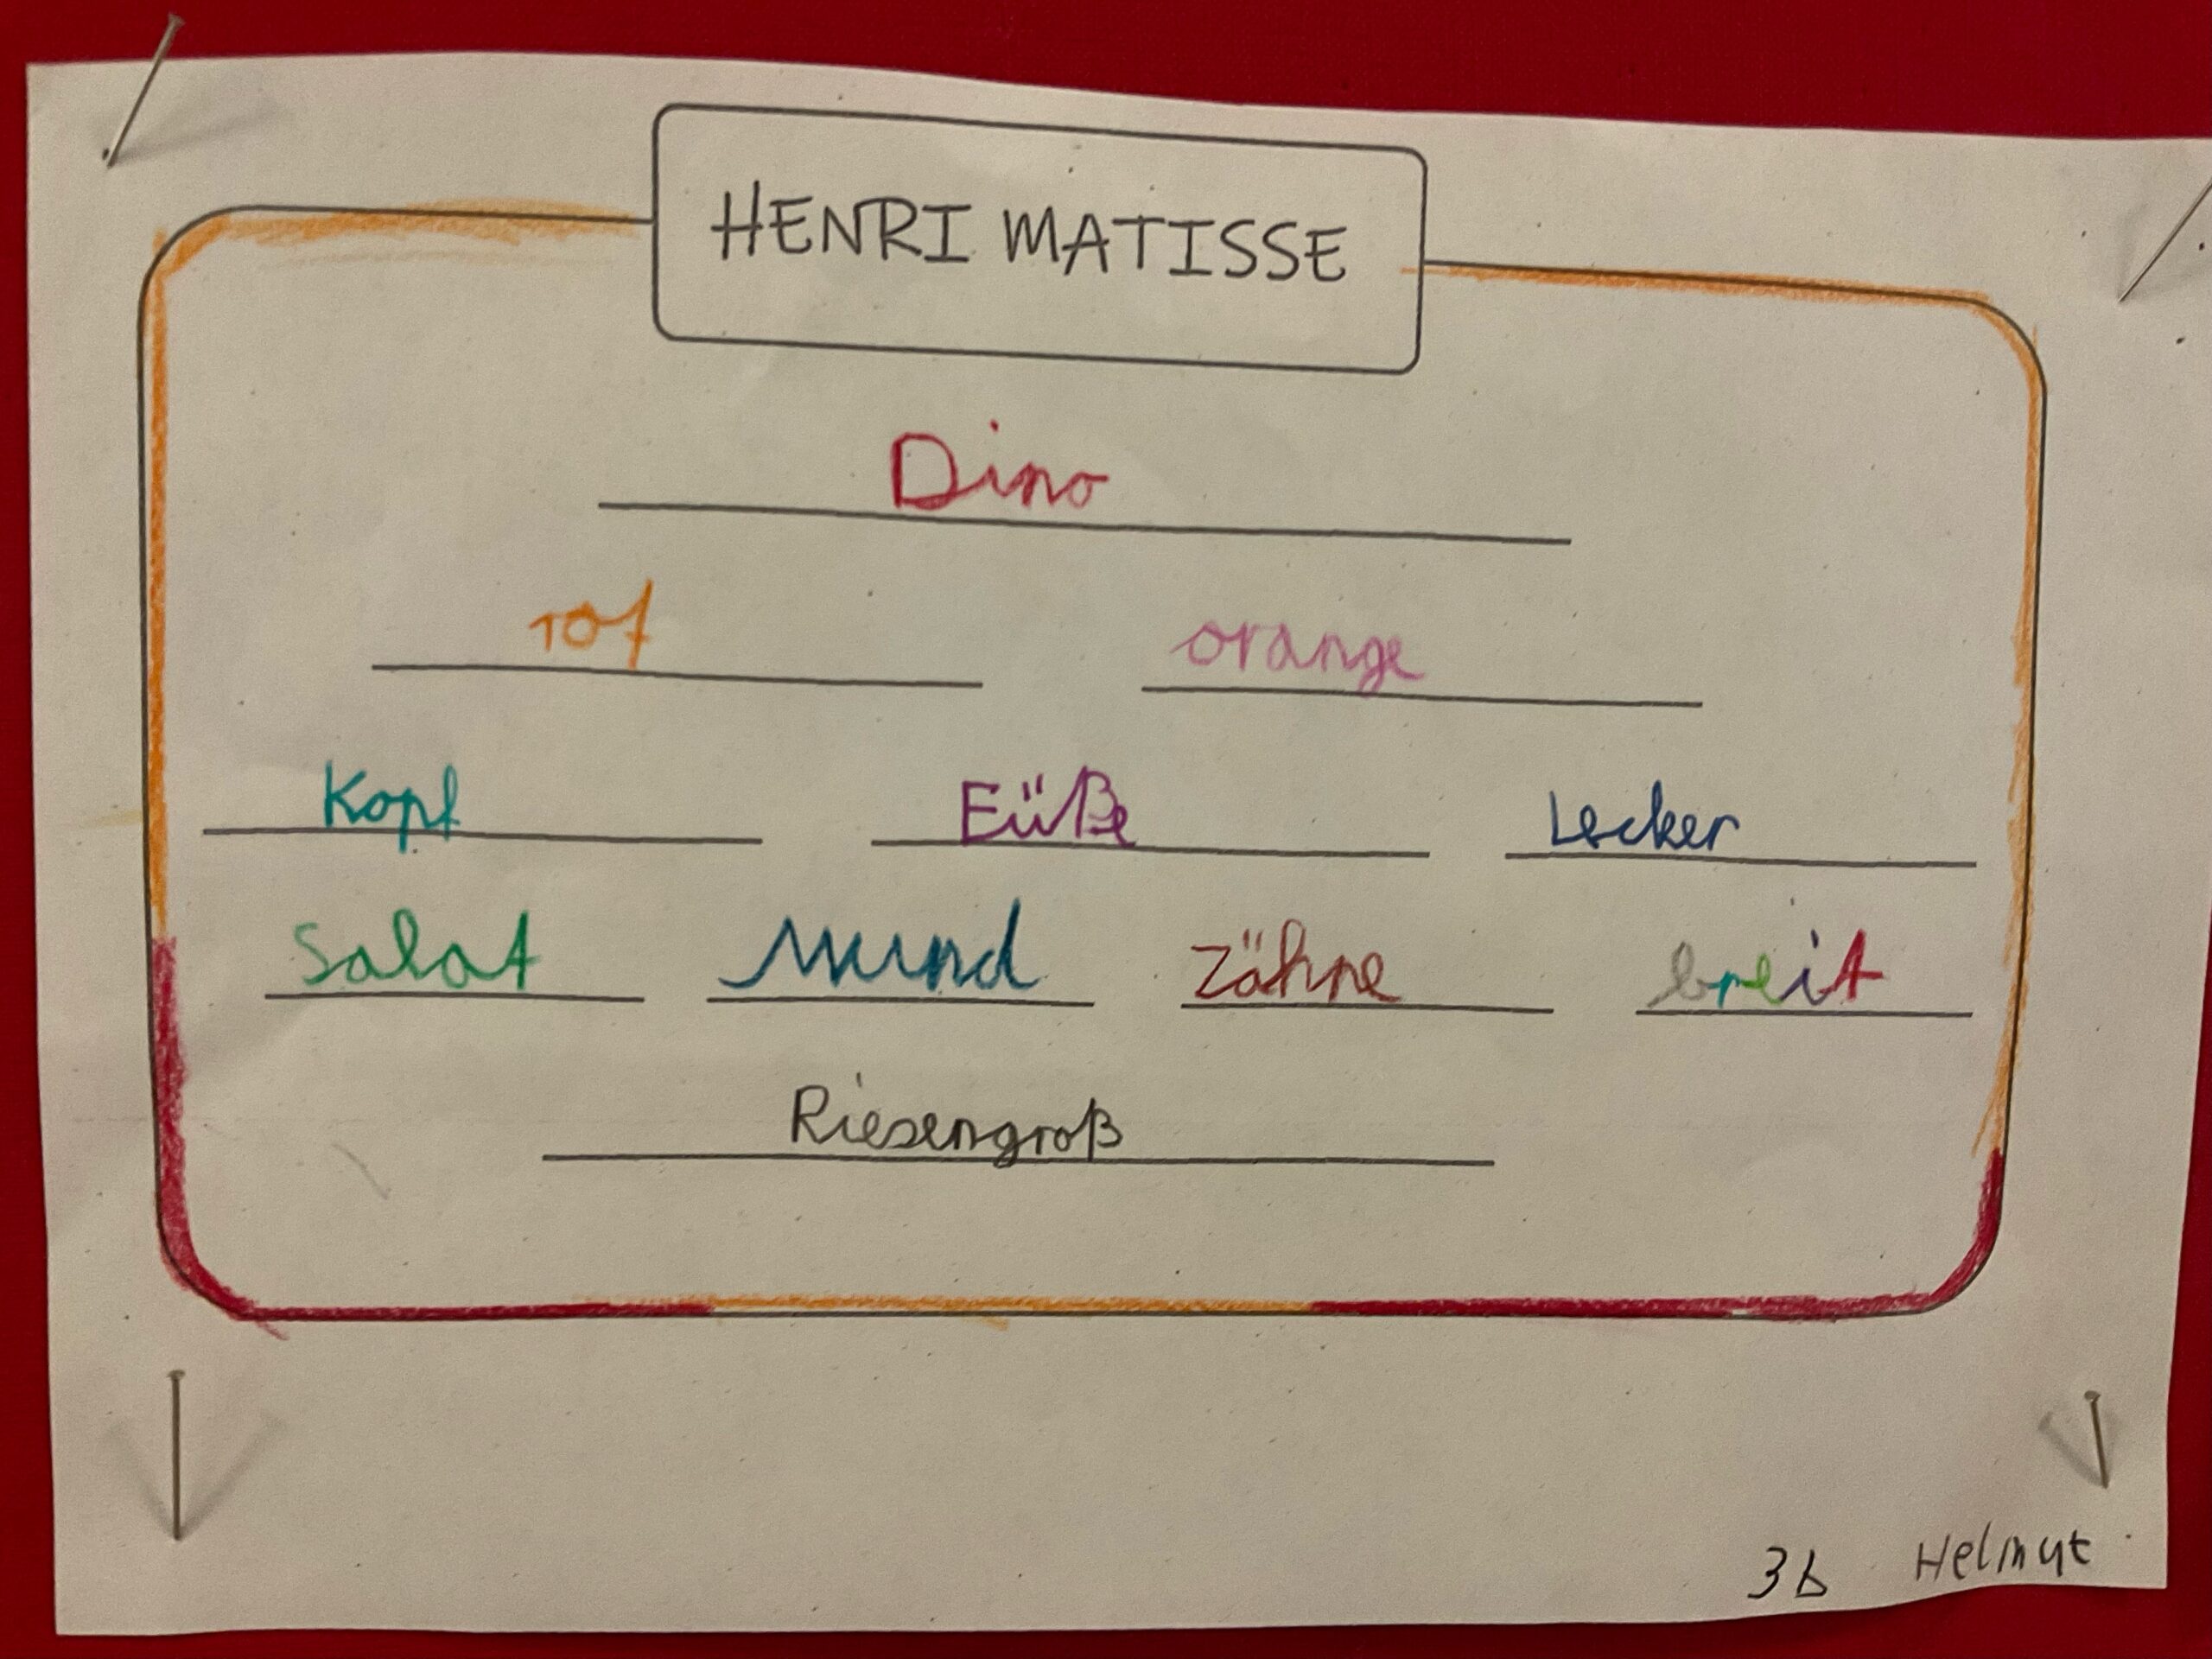 HENRI MATISSE
Dino
rot orange
Kopf Füße Lecker
Salat Mund Zähne breit
Riesengroß
3b Helmut